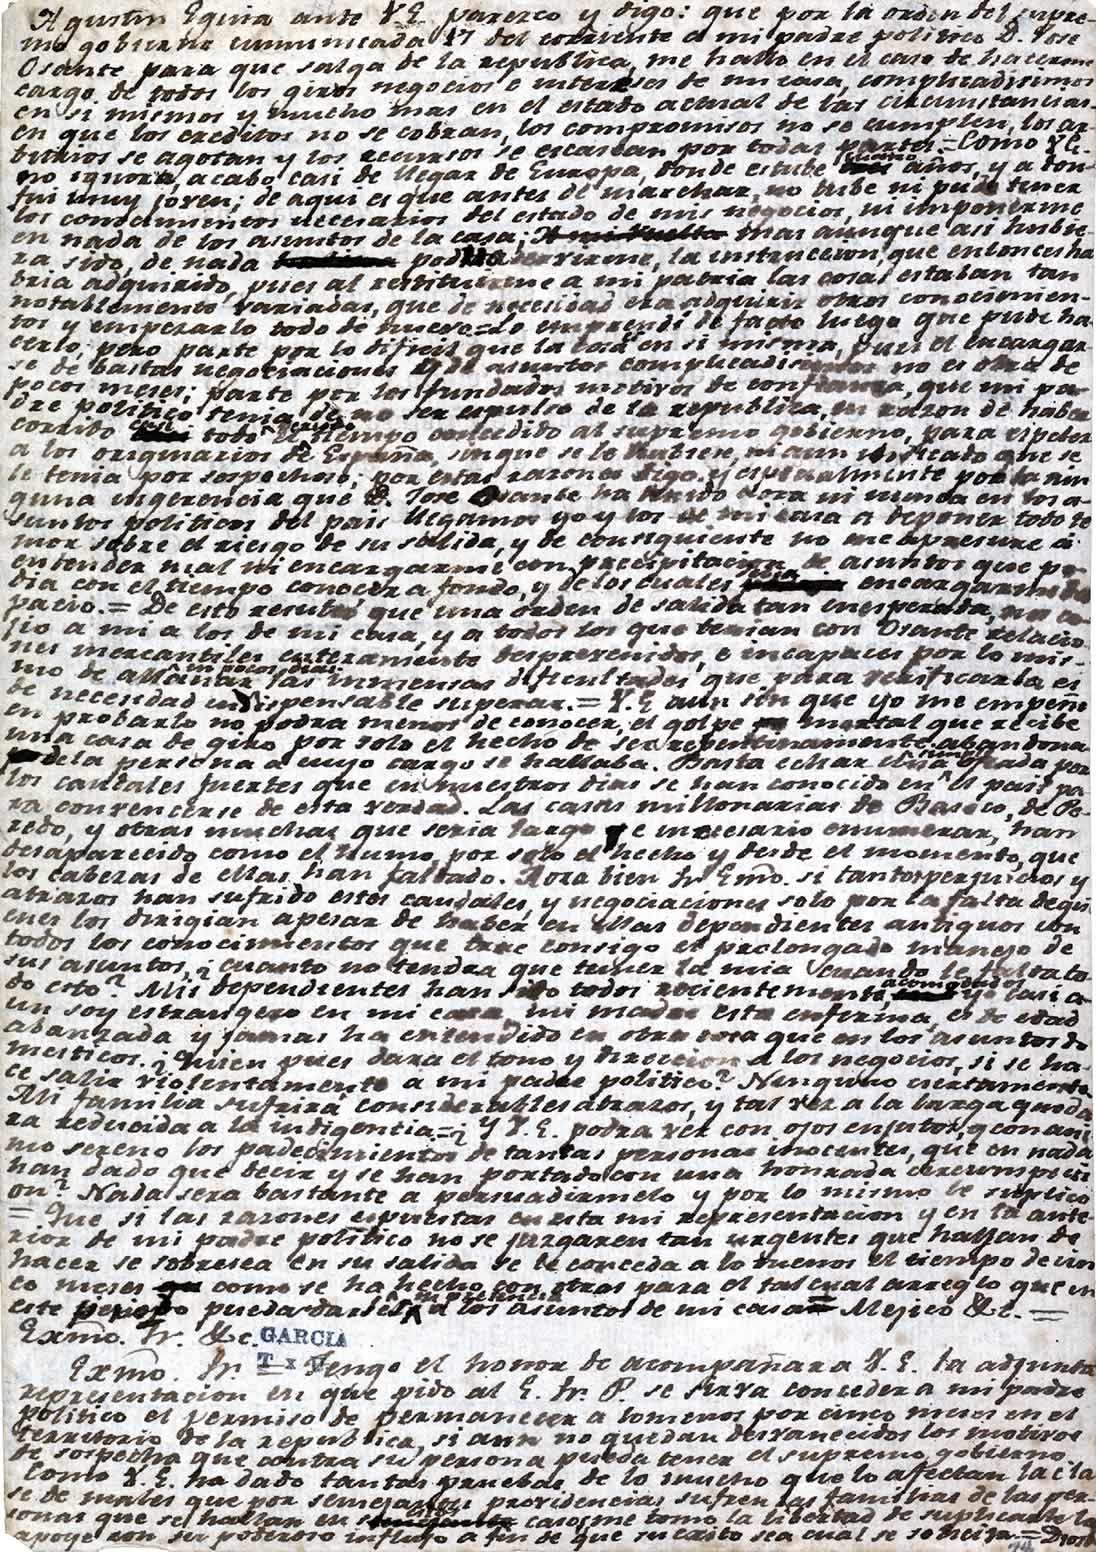 Agustin Eguia ante V.E. parezco y digo: que por la orden del supre-
mo gobierno comunicada 17 del corriente a mi padre politico D. Jose
Osante para que salga de la republica, me hallo en el caso de hacerme
cargo de todos los giros negocios e intereses de mi casa, complicadisimos
en si mismos y mucho mas en el estado actual de las circunstancias
en que los creditos no se cobran, los compromisos no se cumplen, los ar-
bitrios se agotan y los recursos se escasean por todas partes.= Como V.E.
no ignora, acabo casi de llegar de Europa, donde estube cuatro años, y a don-
fui muy joven; de aqui es que antes de marchar, no tube ni pude tener
los conocimientos necesarios del estado de mis negocios, ni imponerme
en nada de los asuntos de la casa; A mi vuelta mas aunque asi hubie-
ra sido, de nada podria servirme, la instruccion, que entonces ha
bria adquirido, pues al restituirme a mi patria las cosas estaban tan
notablemente variadas, que de necesidad era adquirir otros conocimien-
tos y empezarlo todo de nuevo.= Lo emprendi de facto luego que pude ha-
cerlo, pero parte por lo dificil que la cosa en si misma, pues el encargar-
se de bastas negociaciones y de asuntos complicadisimos no es obra de
pocos meses; parte por los fundados motivos de confianza, que mi pa-
dre politico tenia de no ser espulso de la republica, en razon de haber
corrido casi todo el tiempo concedido al supremo gobierno, para espeler
a los originarios de España, sin que se le hubiese, ni aun indicado que se
le tenia por sospechoso; por estas razones digo, y especialmente por la nin
guna ingerencia que D. Jose Osante ha tenido aora ni nunca en los a-
suntos politicos del pais llegamos yo y los de mi casa a deponer todo te
mor sobre el riesgo de su salida, y de consiguiente no me apresure á
entender mal ni encargarme con precipitacion de asuntos que po-
dia con el tiempo conocer a fondo, y de los cuales encargarme de
pacio.= De esto resultó que una orden de salida tan inesperada, nos co-
jio a mi a los de mi casa, y a todos los que tenian con Osante relacio
nes mercantiles enteramente desprevenidos, e incapaces por lo mis-
mo de allanar en pocos dias las inmensas dificultades que para verificarla es
de necesidad indispensable superar.= V.E. aun sin que yo me empeñe
en probarlo no podra menos de conocer, el golpe mortal que recibe
una casa de giro por solo el hecho de ser repentinamente abandona-
da de la persona a cuyo cargo se hallaba. Basta echar una ojeada por
los caudales fuertes que en nuestros dias se han conocido en el pais pa-
ra convencerse de esta verdad. Las casas millonarias de Basoco, de Pe-
redo, y otras muchas que seria largo e inecesario enumerar, han
desaparecido como el humo, por solo el hecho y desde el momento, que
los cabezas de ellas han faltado. Aora bien Sr. Exmo. si tantos perjuicios y
atrazos han sufrido estos caudales, y negociaciones solo por la falta de qui
enes los dirigian apesar de haber en ellas dependientes antiguos con
todos los conocimientos que trae consigo el prolongado manejo de
sus asuntos, ¿cuanto no tendra que temer la mia cuando le falta to-
do esto? Mis dependientes han sido todos recientemente acomodados yo casi a-
un soy estrangero en mi casa, mi madre esta enferma, es de edad
abanzada y jamas ha entendido en otra cosa que en los asuntos do
mesticos. ¿Quien pues dara el tono y direccion a los negocios, si se ha-
ce salir violentamente a mi padre politico? Ninguno ciertamente.
Mi familia sufrirá considerables atrazos, y tal vez a la larga queda
ra reducida a la indigencia.=¿Y V.E. podra ver con ojos enjutos, y con ani
mo sereno los padecimientos de tantas personas inocentes, que en nada
han dado que decir y se han portado con una honrada circunspecci
on? Nada sera bastante a persuadirmelo y por lo mismo le suplico
= Que si las razones espuestas en esta mi representacion y en la ante-
rior de mi padre politico no se juzgaren tan urgentes que hallan de
hacer se sobresea en su salida se le conceda a lo menos el tiempo de cin
co meses como se ha hecho con otros para el tal cual arreglo que en
este periodo pueda darse en presencia a los asuntos de mi casa = Mejico &c. =
Exmo. Sr. &c. GARCIA
Exmo. Sr. = Tengo el honor de acompañar a V.E. la adjunta
representacion en que pido al E. Sr. P. se sirva conceder a mi padre
politico el permiso de permanecer a lo menos por cinco meses en el
territorio de la republica, si aun no quedan desvanecidos los motivos
de sospecha que contra su persona pueda tener el supremo gobierno.
Como V.E. ha dado tantas pruebas de lo mucho que lo afectan la cla
se de males que por semejantes providencias sufren las familias de las per-
sonas que se hallan en casos me tomo la libertad de suplicarle la
apoye con su poderoso influjo a fin de que su exito sea cual se solicita.= Dios